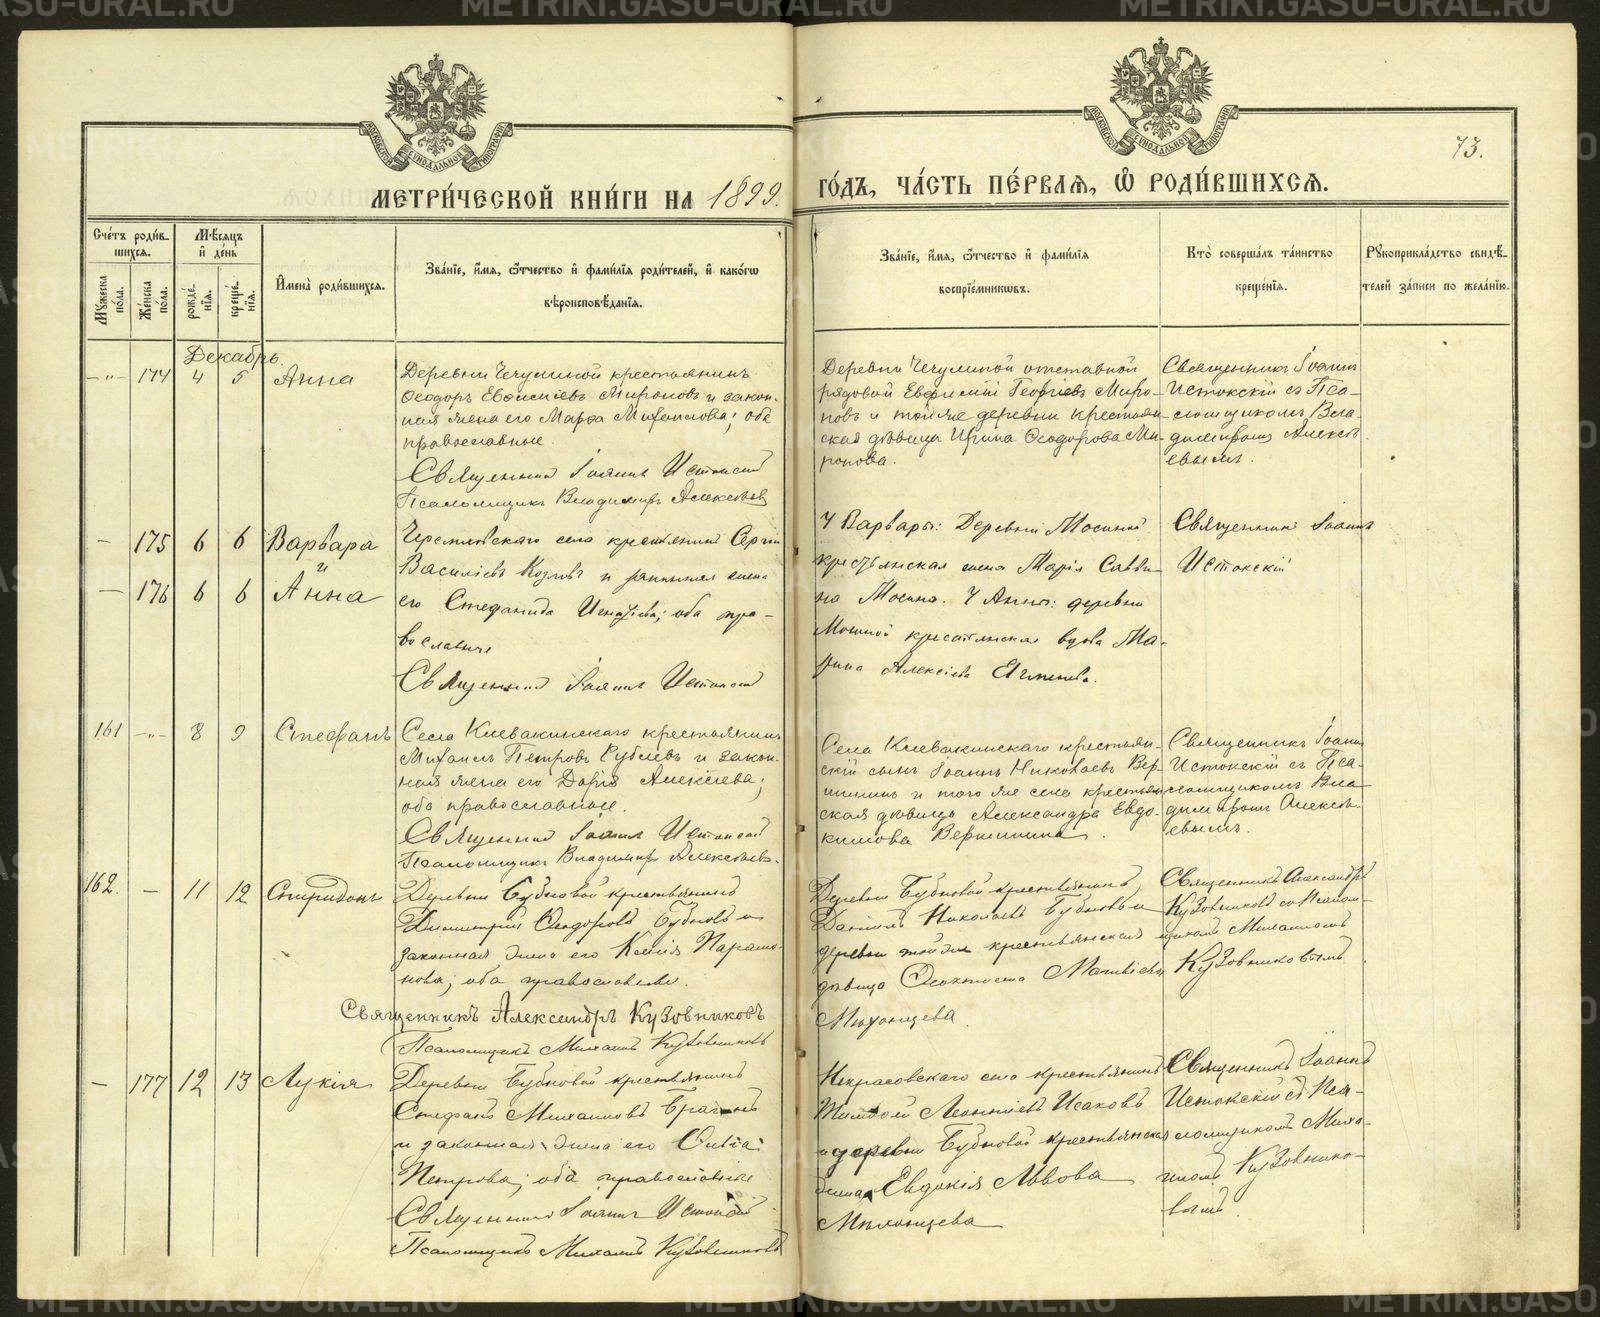 METRIKI.GASU-URAL.RU
73.
МОСКОВСКОЙ СѴНОДАЛЬНОЙ ТИПОГРАФІИ
МЕТРИ́ЧЕСКОЙ КНИ́ГИ НА 1899.
ГО́ДЪ, ЧА́СТЬ ПЕ́РВАѦ, Ѿ РОДИ́ВШИХСѦ.
Сче́тъ роди́в-
шихсѧ.
Мѣ́сѧцъ
и҆ де́нь
Мꙋ́жеска по́ла.
Же́нска по́ла.
рожде́-нїѧ.
креще́-нїѧ.
И҆мена̀ роди́вшихсѧ.
Зва́нїе, и҆́мѧ, ѻ҆́тчество и҆ фами́лїѧ роди́телей, и҆ како́гѡ
вѣроисповѣ́данїѧ.
Зва́нїе, и҆́мѧ, ѻ҆́тчество и҆ фами́лїѧ
воспрїе́мникѡвъ.
Кто̀ соверша́лъ та́инство
креще́нїѧ.
Рꙋкоприкла́дство свидѣ́-
телей за́писи по жела́нїю.
Декабрь.
—"— 174 4 5 Анна
Деревни Чечулиной крестьянинъ
Ѳеодоръ Евѳиміевъ Мироновъ и закон-
ная жена его Марѳа Михаилова; оба
православные.
Священникъ Іоаннъ Истокскій
Псаломщикъ Владимиръ Алексѣевъ
Деревни Чечулиной отставной
рядовой Евфимій Георгіевъ Миро-
новъ и той же деревни крестьян-
ская дѣвица Ирина Ѳеодорова Ми-
ронова.
Священникъ Іоаннъ
Истокскій съ Пса-
ломщикомъ Вла-
димиромъ Алексѣ-
евымъ.
— 175 6 6 Варвара
и
— 176 6 6 Анна
села крестьянинъ Сергій
Василіевъ Козловъ и законная жена
его Стефанида Игнатіева; оба пра-
вославные
Священникъ Іоаннъ Истокскій
У Варвары: Деревни Мосиной
крестьянская жена Марія Савви-
на Мосина. У Анны: деревни
Мосиной крестьянская вдова Ма-
рина Алексіева
Священникъ Іоаннъ
Истокскій
161 —"— 8 9 Стефанъ
Села Клевакинскаго крестьянинъ
Михаилъ Петровъ Рублевъ и закон-
ная жена его Дарія Алексіева;
оба православные.
Священникъ Іоаннъ Истокскій
Псаломщикъ Владимиръ Алексѣевъ.
Села Клевакинскаго крестьян-
скій сынъ Іоаннъ Николаевъ Вер-
шининъ и того же села крестьян-
ская дѣвица Александра Евдо-
кимова Вершинина.
Священникъ Іоаннъ
Истокскій съ Пса-
ломщикомъ Вла-
димиромъ Алексѣ-
евымъ.
162. — 11 12 Спиридонъ
Деревни Бубновой крестьянинъ
Димитрій Ѳеодоровъ Бубновъ и
законная жена его Ксенія Парамо-
нова; оба православные.
Священникъ Александръ Кузовниковъ
Псаломщикъ Михаилъ Кузовниковъ
Деревни Бубновой крестьянинъ
Даніилъ Николаевъ Бубновъ и
деревни той же крестьянская
дѣвица Ѳеоктиста Матвіева
Мѣхонцева.
Священникъ Александръ
Кузовниковъ со Псалом-
щикомъ Михаиломъ
Кузовниковымъ.
— 177 12 13 Лукія
Деревни Бубновой крестьянинъ
Стефанъ Михаиловъ Брагинъ
и законная жена его
Петрова; оба православные
Священникъ Іоаннъ Истокскій
Псаломщикъ Михаилъ Кузовниковъ
Некрасовскаго села крестьянинъ
Тимофей Леонтіевъ Исаковъ
и деревни Бубновой крестьянская
Евдокія Львова
Мѣхонцева
Священникъ Іоаннъ
Истокскій съ Пса-
ломщикомъ Миха-
иломъ Кузовнико-
вымъ.